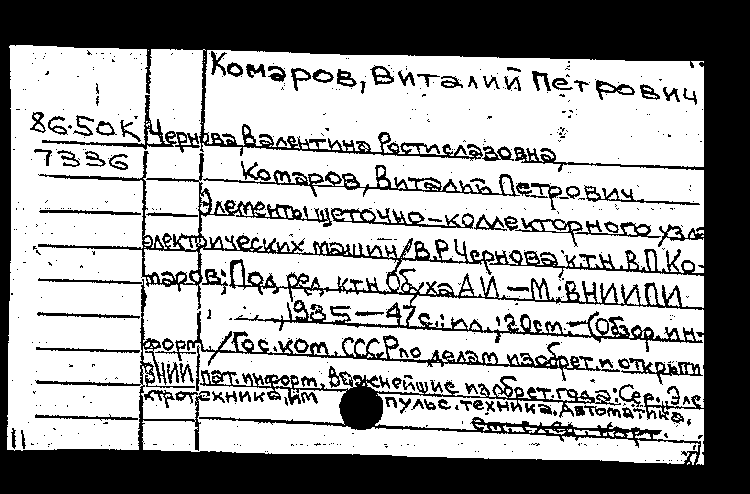 Комаров, Виталий Петрович
86-50К Чернова, Валентина Ростиславовна,
7336 Комаров, Виталий Петрович
Элементы щеточно-коллекторного узла
электрических машин/В.Р.Чернова, к.т.н. В.П.Ко-
маров; Под ред. к.т.н. Обуха А.И. — М.: ВНИИПИ
, 1985 — 47с.: ил.; 20см. — (Обзор. ин-
форм. /Гос. ком. СССР по делам изобрет. и открыти
ВНИИ пат. информ. Важнейшие изобрет. года: Сер. Эле
ктротехника, Им пульс. техника. Автоматика.
см. след. карт.